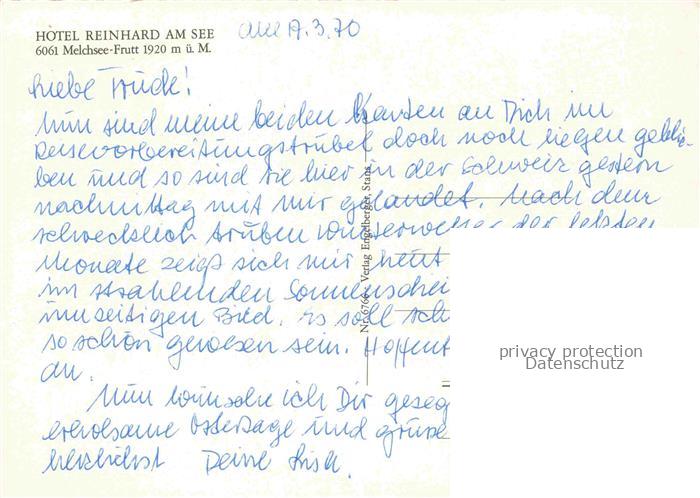 HOTEL REINHARD AM SEE
6061 Melchsee-Frutt 1920 m ü. M.
am 17.3.70
Liebe Trude!
Nun sind meine beiden Karten an Dich im
Reisevorbereitungstrubel doch noch liegen geblie-
ben und so sind sie hier in der Schweiz gestern
nachmittag mit mir gelandet. Nach dem
schrecklich trüben Winterwetter der letzten
Monate zeigt sich mir heut
im strahlenden Sonnenschei
umseitigen Bild. Es soll sch
so schön gewesen sein. Hoffent
an.
Nun wünsche ich Dir geseg
erholsame Ostertage und grüße
herzlichst Deine
Nr. 6766 Verlag Engelberger, Stans
privacy protection
Datenschutz